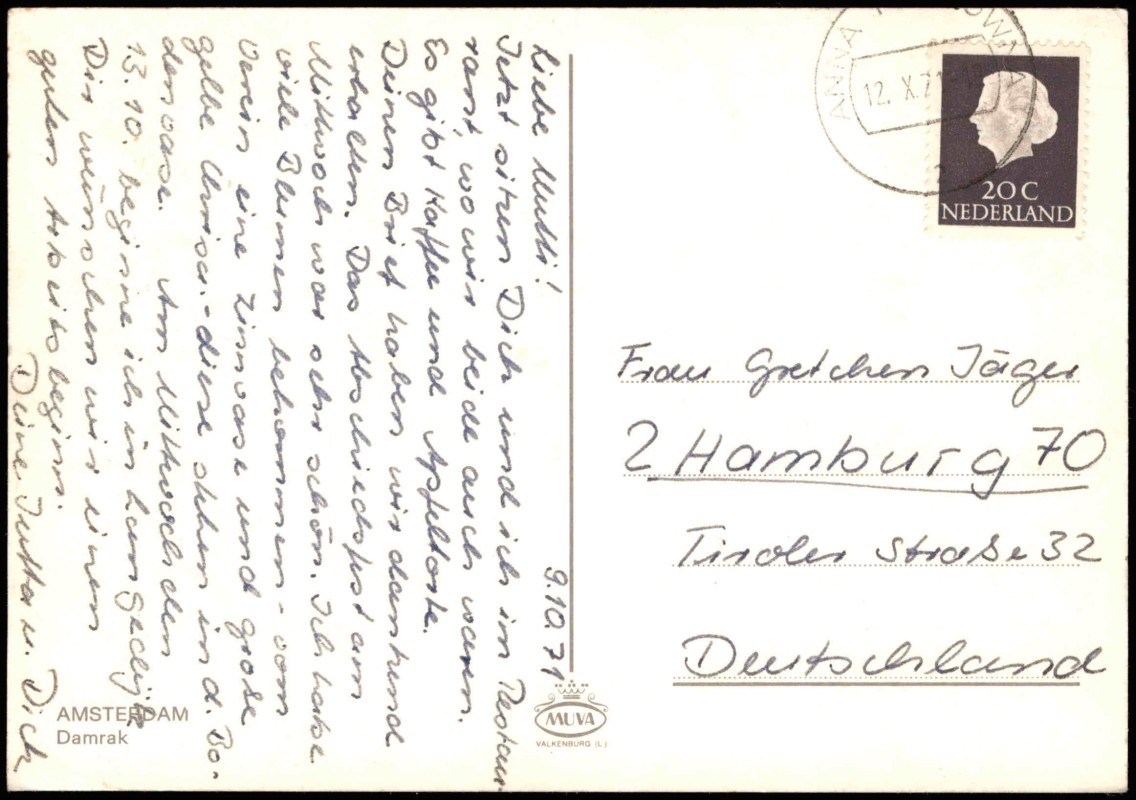 9.10.71
Liebe Mutti!
Jetzt sitzen Dick und ich im Restau-
rant, wo wir beide auch waren.
Es gibt Kaffee und Apfeltorte.
Deinen Brief haben wir dankend
erhalten. Das Abschiedsfest am
Mittwoch war sehr schön. Ich habe
viele Blumen bekommen - vom
Verein eine Zinnvase und große
gelbe - diese stehen in d. Bo-
denvase. Am Mittwoch den
13.10. beginne ich in Langedijk
Dir wünschen wir einen
guten Arbeitsbeginn.
Deine Jutta u. Dick
AMSTERDAM
Damrak
MUVA
VALKENBURG (L)
ANNA
12.X.71
20 C
NEDERLAND
Frau Gretchen Jäger
2 Hamburg 70
Tiroler Straße 32
Deutschland